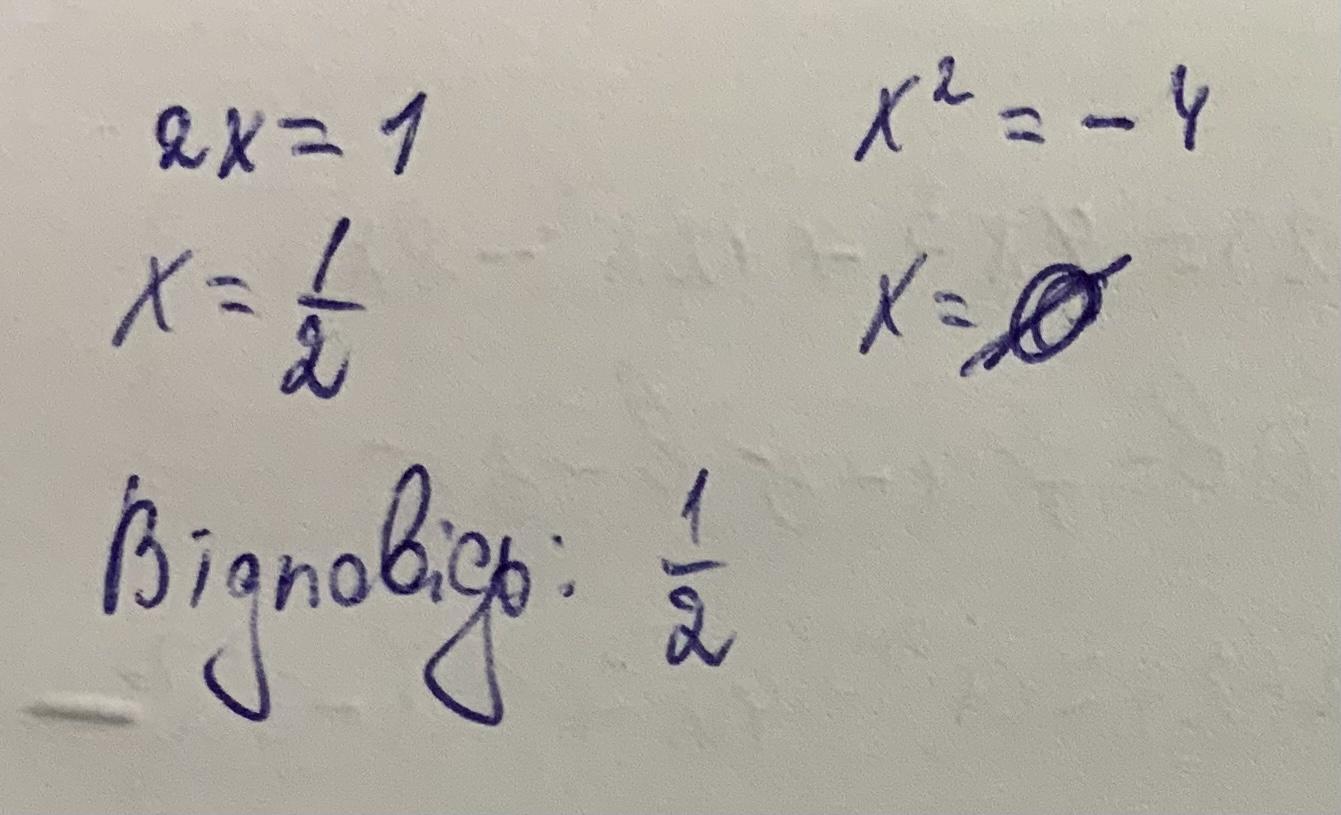 2x = 1
x² = - 4
x = 1/2
x = ∅
Відповідь: 1/2